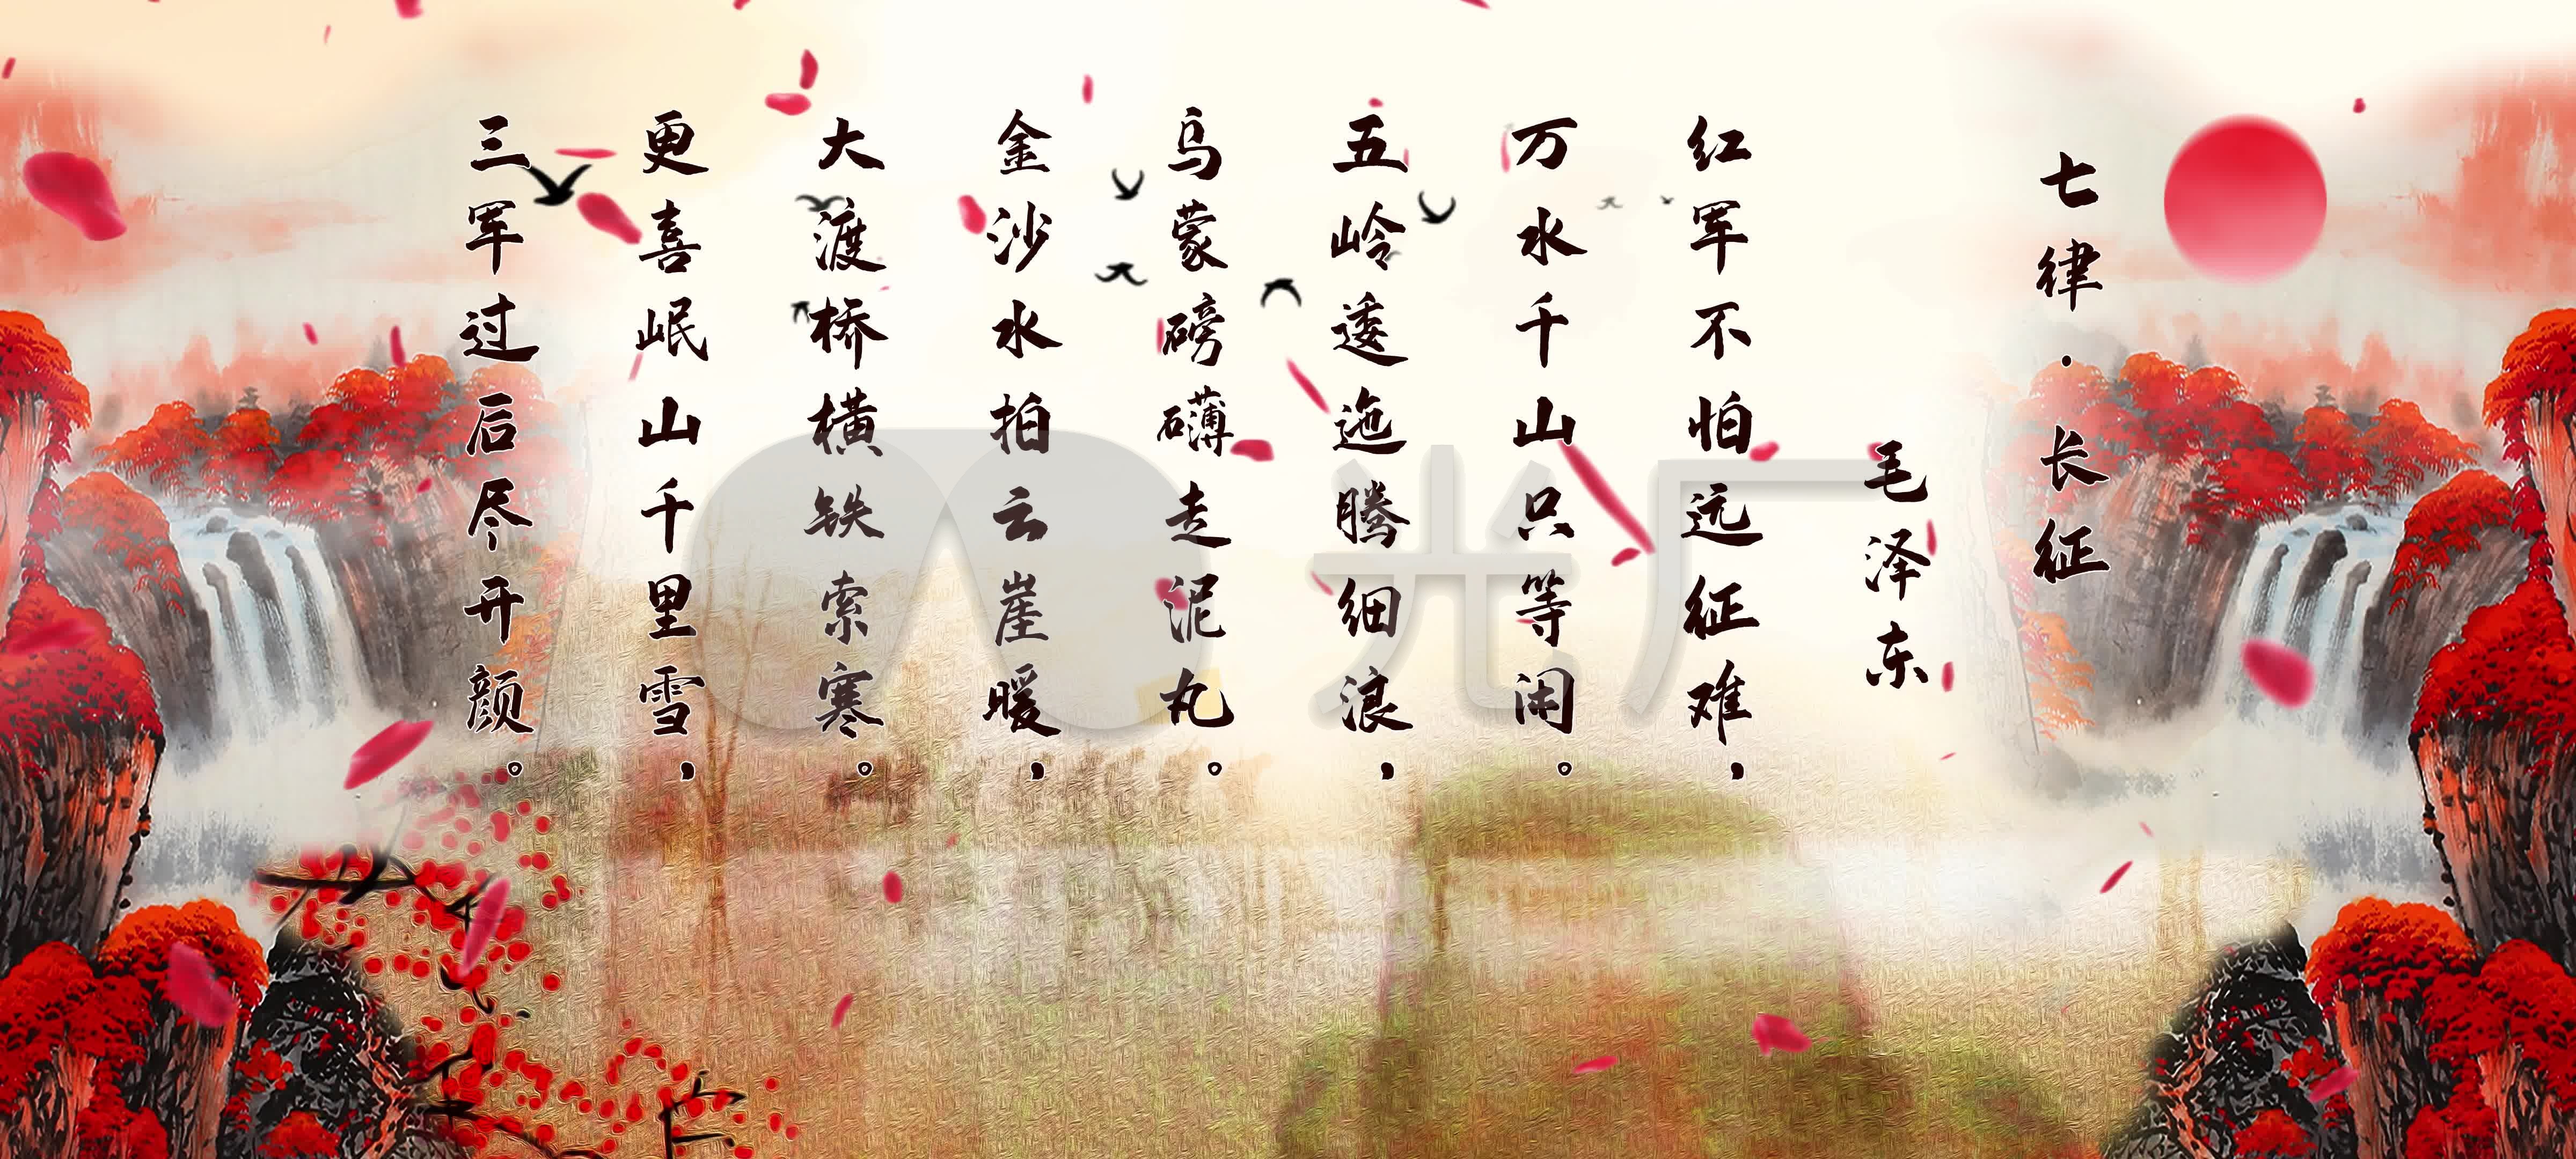 七律·长征
毛泽东
红军不怕远征难，
万水千山只等闲。
五岭逶迤腾细浪，
乌蒙磅礴走泥丸。
金沙水拍云崖暖，
大渡桥横铁索寒。
更喜岷山千里雪，
三军过后尽开颜。
光厂